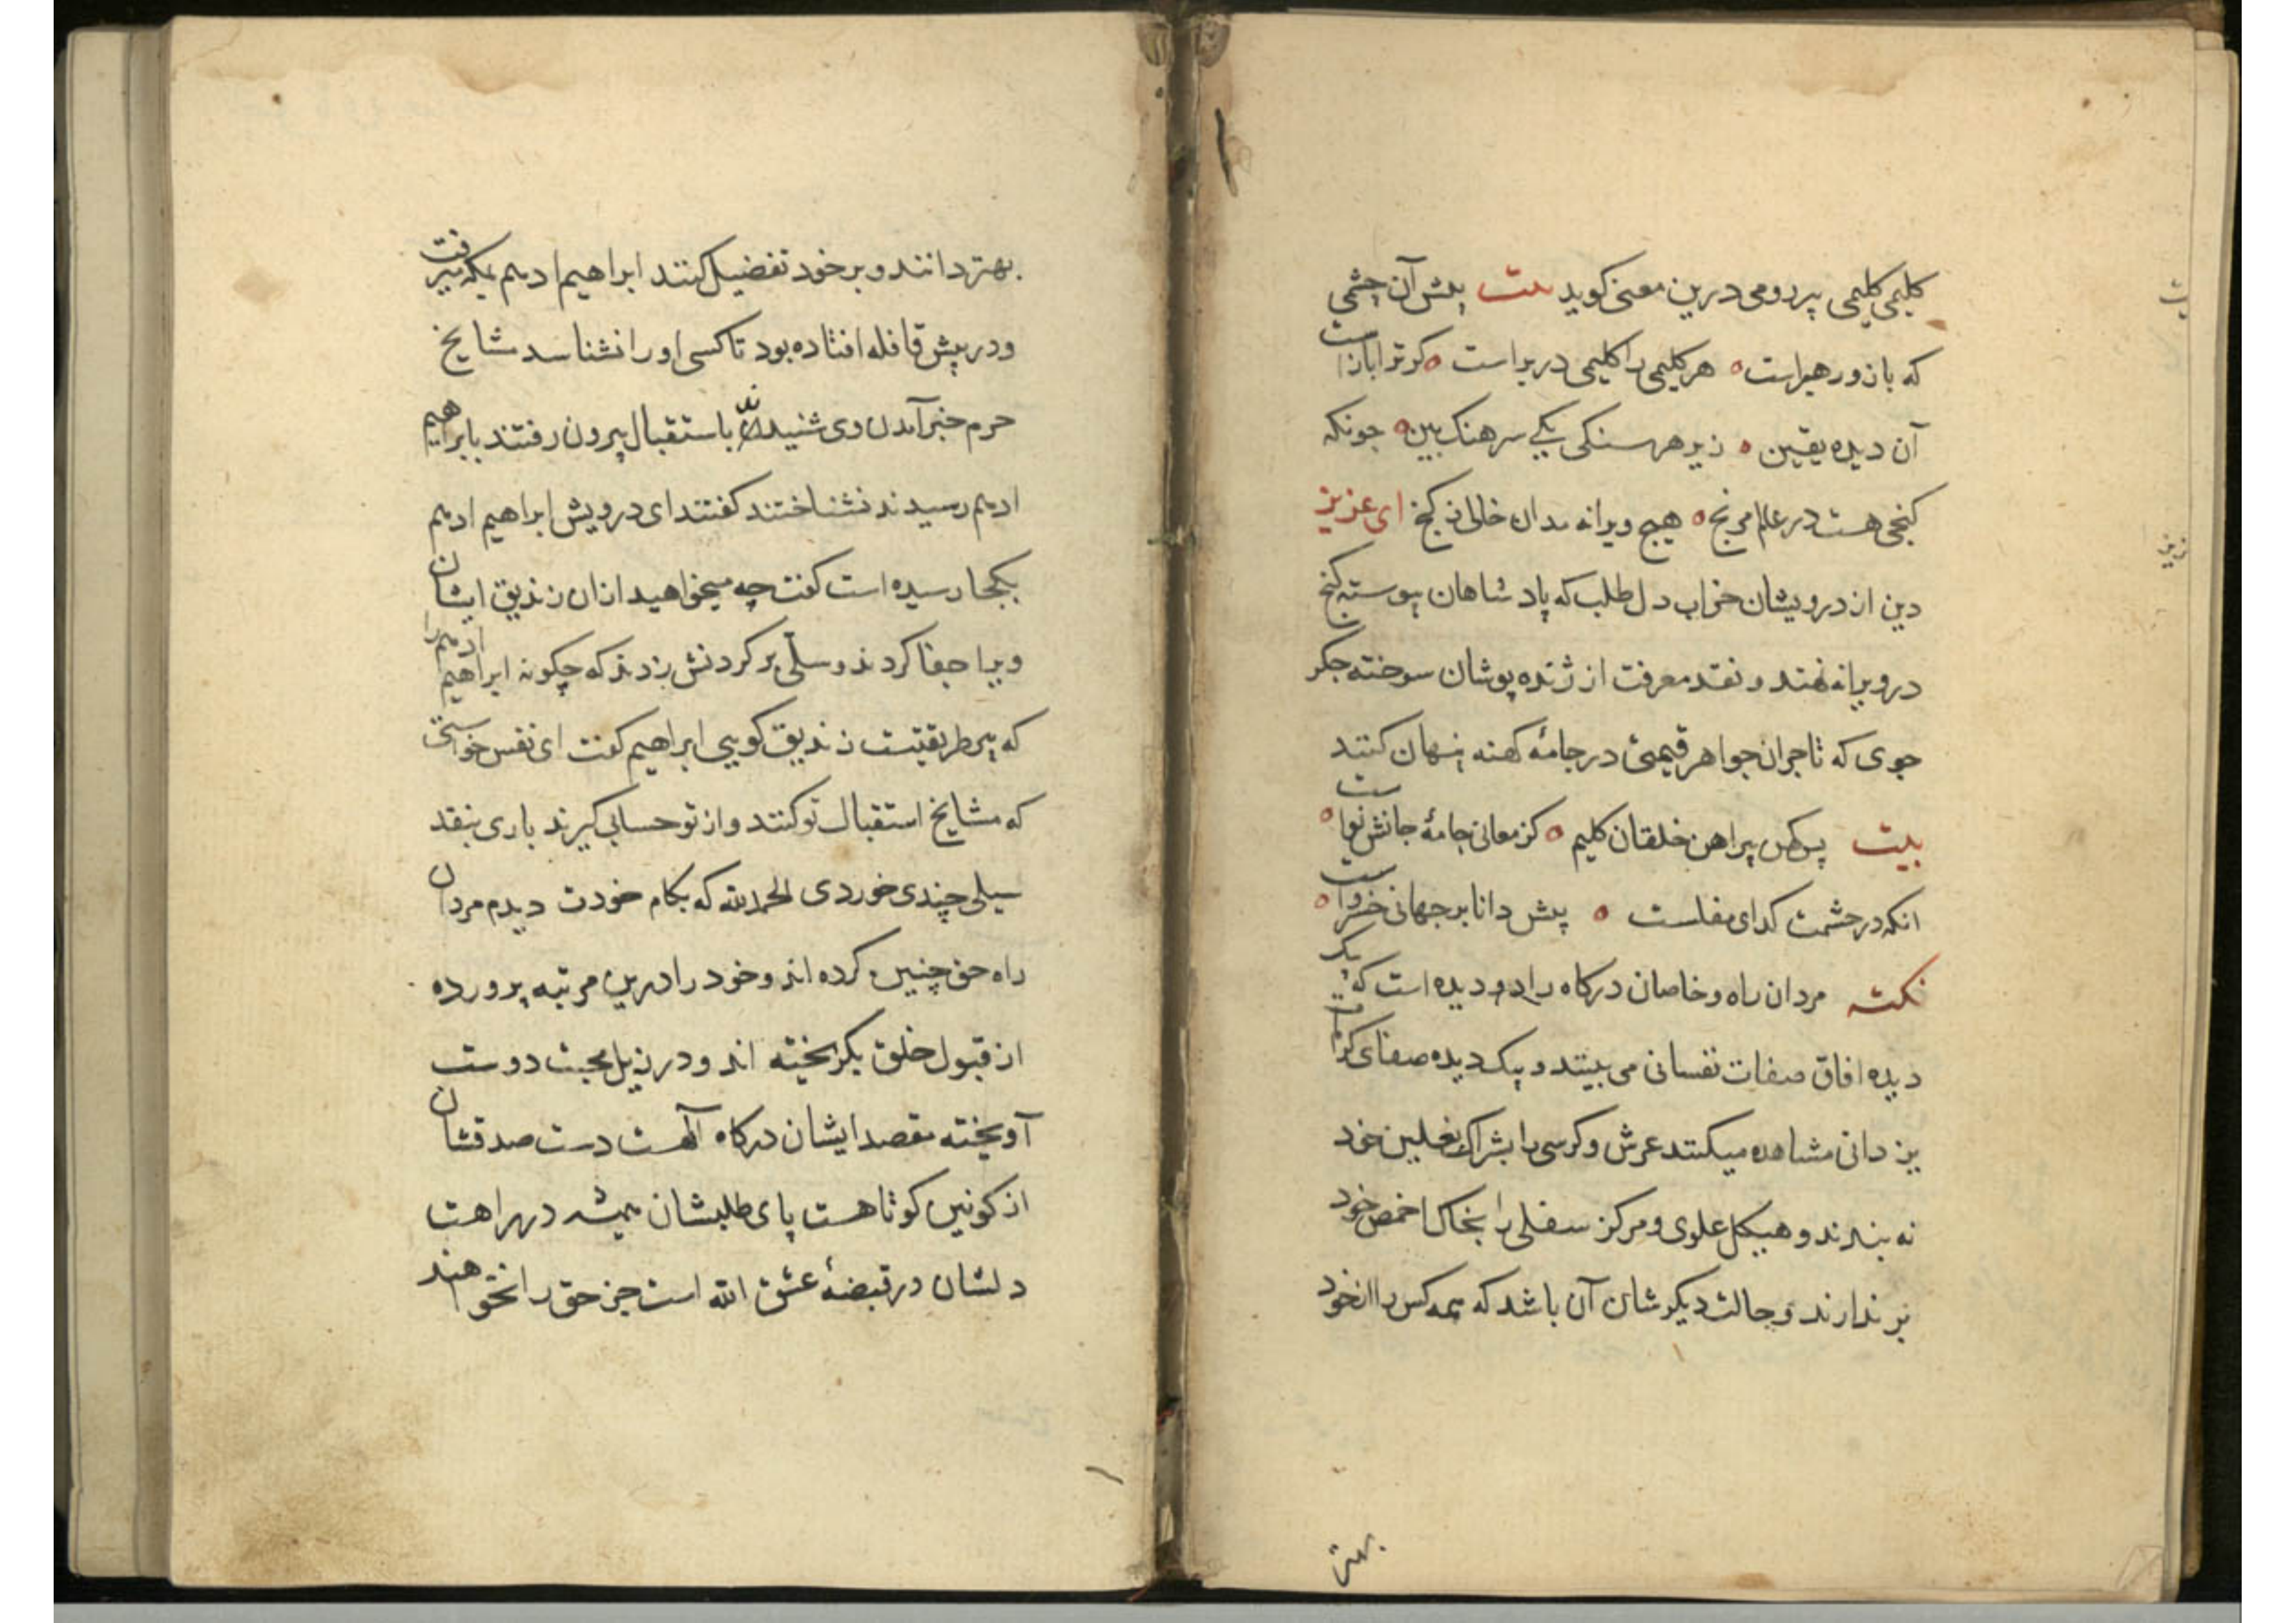 کلیمی کلیمی پیر رومی درین معنی کوید بیت پیش آن چشمی
که باز و رهبراست هر کلیمی را کلیمی در براست کر ترا بازاست
آن دیده یقین زیر هر سنکی یکی سرهنک بین جونکه
کنجی هست در عالم مرنج هیچ ویرانه مدان خالی ز کنج ای عزیز
دین از درویشان خراب دل طلب که پادشاهان پیوسته کنج
در ویرانه نهند و نقد معرفت از ژنده پوشان سوخته جکر
جوی که تاجران جواهر قیمتی در جامهٔ کهنه پنهان کنند
بیت پیراهن خلقان کلیم کز معانی جامهٔ جانش نواست
انکه در چشمت کدای مفلست پیش دانا بر جهانی خسرواست
نکته مردان راه و خاصان درکاه را دو دیده است که بیک
دیده افاق صفات نفسانی می بینند و بیک دیده صفای کرامت
یزدانی مشاهده میکنند عرش و کرسی را بشراک نعلین خود
نه بندند و هیکل علوی و مرکز سفلی را بخاک اخمص خود
بر ندارند و حالت دیکر شان آن باشد که همه کس را از خود
بهتر
بهتر دانند و بر خود تفضیل کنند ابراهیم ادهم بمکه میرفت
و در پیش قافله افتاده بود تا کسی او را نشناسد مشایخ
حرم خبر آمدن وی شنیدند باستقبال بیرون رفتند بابراهیم
ادهم رسیدند نشناختند کفتند ای درویش ابراهیم ادهم
بکجا رسیده است کفت چه میخواهید ازان زندیق ایشان
ویرا جفا کردند و سلّی بر کردنش زدند که چکونه ابراهیم ادهم را
که پیر طریقتست زندیق کویی ابراهیم کفت ای نفس خواستی
که مشایخ استقبال تو کنند و از تو حسابی کیرند باری بنقد
سیلی چندی خوردی الحمدلله که بکام خودت دیدم مردان
راه حق چنین کرده اند و خود را درین مرتبه پرورده
از قبول خلق بکریخته اند و در ذیل محبت دوست
آویخته مقصد ایشان درکاه آلهست دست صدقشان
از کونین کوتاهست پای طلبشان همیشه در راهست
دلشان در قبضهٔ عشق الله است جز حق را نخواهند